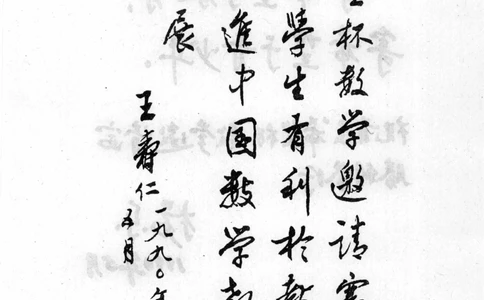 杯数学邀請賽
學生有利於
進中国数学
展
王壽仁一九九〇年
五月